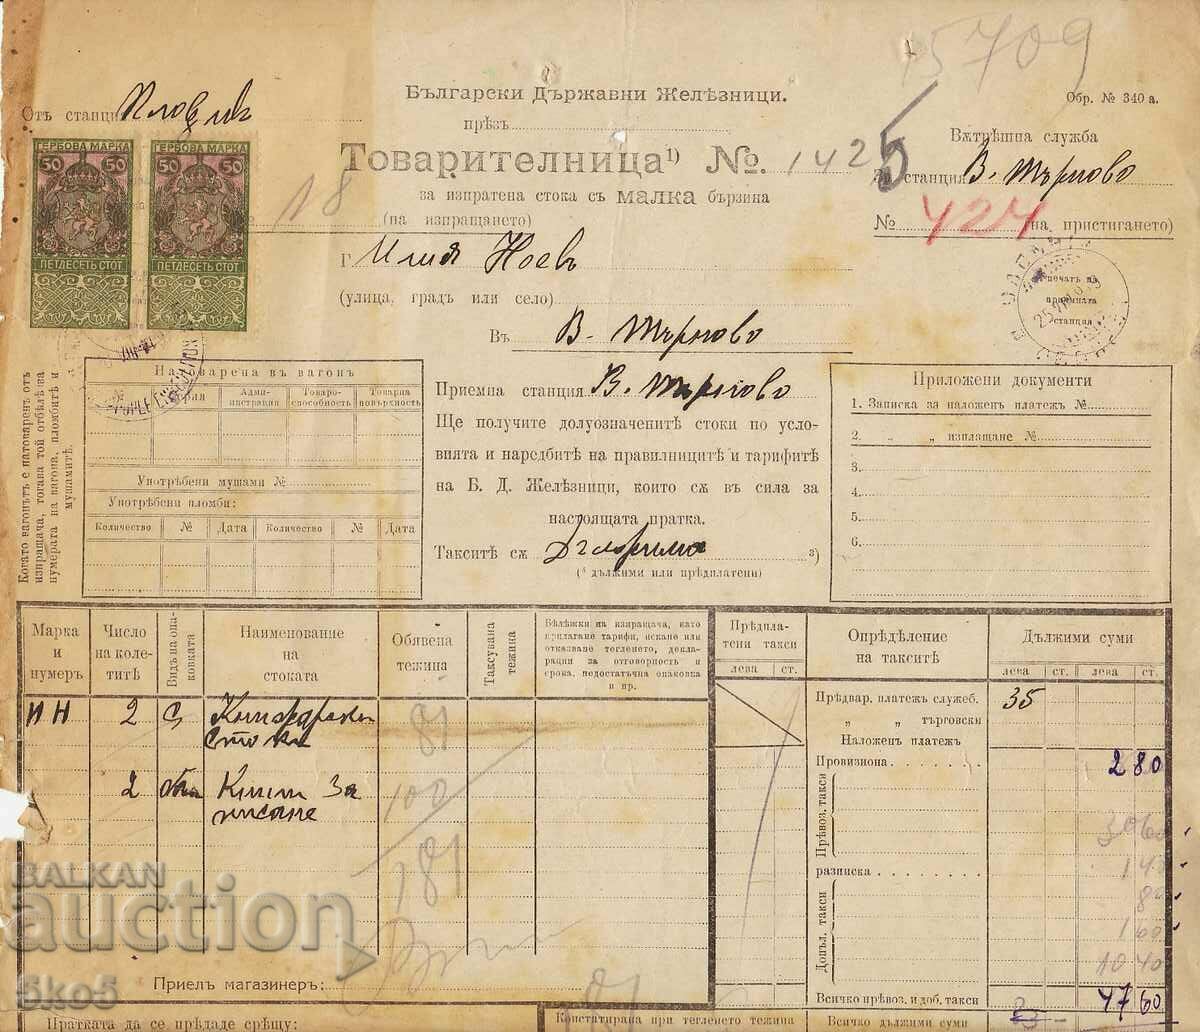 15709
Български Държавни Желѣзници.
Обр. № 340 а.
Отъ станция Пловдив
прѣзъ
Вѫтрѣшна служба
Товарителница¹) №. 1425
За станция В. Търново
за изпратена стока съ МАЛКА бързина
(на изпращането)
№ 424 (на пристигането)
18
ГЕРБОВА МАРКА
50 50
ПЕТДЕСЕТЬ СТОТ
ГЕРБОВА МАРКА
50 50
ПЕТДЕСЕТЬ СТОТ
Г Илия Ноевъ
(улица, градъ или село)
Въ В. Търново
печатъ на
приемната
станция
Приемна станция В. Търново
Ще получите долуозначенитѣ стоки по усло-
вията и наредбитѣ на правилницитѣ и тарифитѣ
на Б. Д. Желѣзници, които сѫ въ сила за
настоящата пратка.
Таксите сѫ Дължими ³)
(³ дължими или прѣдплатени)
Когато вагонътъ е натоваренъ отъ
изпращача, тогава той отбѣлѣзва
нумерата на вагона, пломбитѣ и
мушамитѣ.
Натоварена въ вагонъ
Серия
Адми-
нистрация
Товаро-
способность
Товарна
повърхность
Употрѣбени мушами №
Употрѣбени пломби:
Количество № Дата Количество № Дата
Приложени документи
1. Записка за наложен платежъ №
2. „ „ изплащане №
3.
4.
5.
6.
Марка
и
нумеръ
Число
на коле-
титѣ
Видъ на опа-
ковката
Наименование
на
стоката
Обявена
тежина
Таксувана
тежина
Бѣлежки на изпращача, като
прилагане тарифи, искане или
отказване тегленето, декла-
рации за отговорность и
срока, недостатъчна опаковка
и пр.
Прѣдпла-
тени такси
лева ст.
Опрѣдѣление
на таксите
Дължими суми
лева ст. лева ст.
ИН 2 Кинкалер
стока 81
2 Книги за
писане 100
181
Прѣдвар. платежъ служеб. 35
„ „ търговски
Наложен платежъ
Провизиона 2 80
Прѣвоз. такси
30 60
разписка 1 40
Допъл. такси
80
1 60
10 40
Всичко прѣвоз. и доб. такси 47 60
Приелъ магазинеръ:
Пратката да се прѣдаде срѣщу:
Констатирана при тегленето тежина
Всичко дължими суми
BALKAN
auction
5ko5